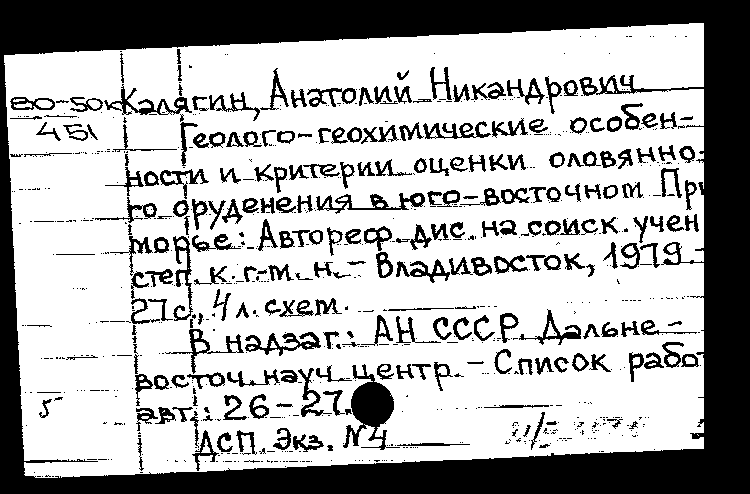 80-50к Калягин, Анатолий Никандрович
451
Геолого-геохимические особен-
ности и критерии оценки оловянно-
го оруденения в юго-восточном При
морье: Автореф. дис. на соиск. учен
степ. к. г-м. н. - Владивосток, 1979. -
27 с., 4 л. схем.
В надзаг.: АН СССР. Дальне-
восточ. науч. центр. - Список работ
5 авт.: 26-27.
ДСП. Экз. N4